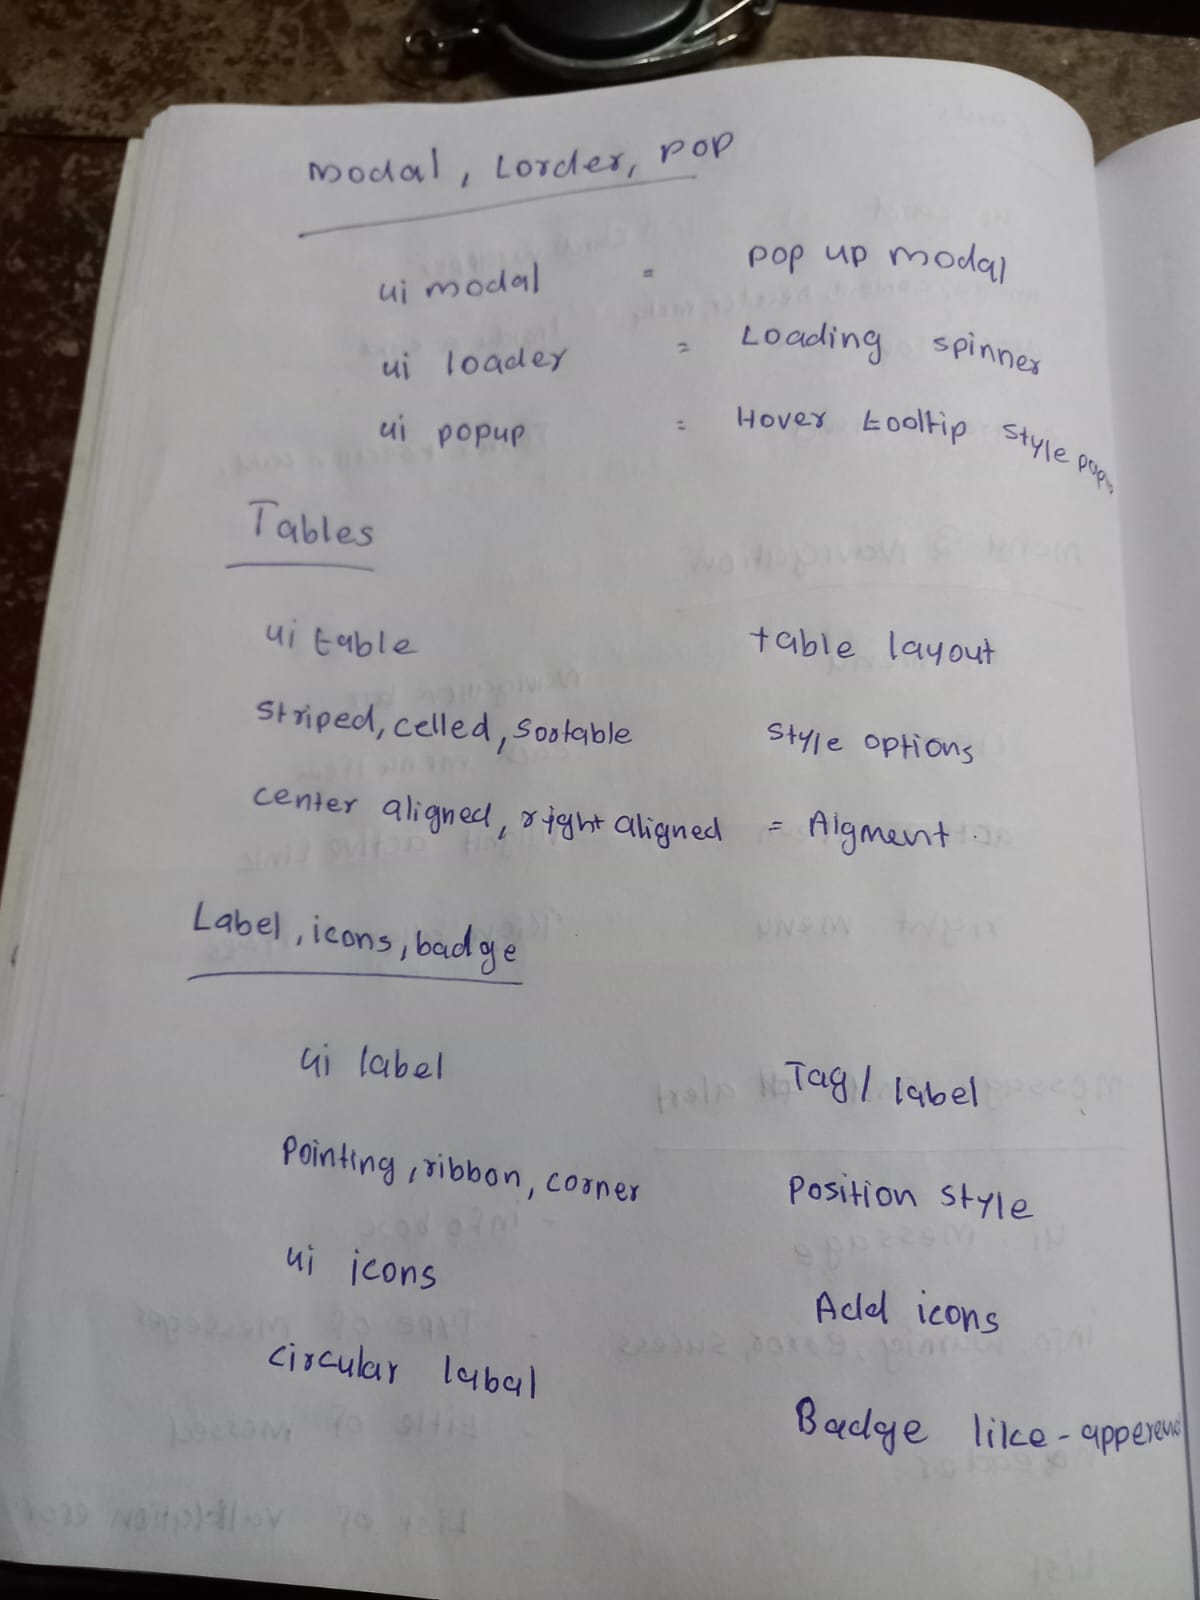 modal, Lorder, pop
ui modal = pop up modal
ui loader = Loading spinner
ui popup = Hover tooltip style popu
Tables
ui table table layout
striped, celled, sortable style options
center aligned, right aligned = Algment.
Label, icons, badge
ui label Tag/ label
pointing, ribbon, corner position style
ui icons Add icons
circular labal Badge like-apperenc